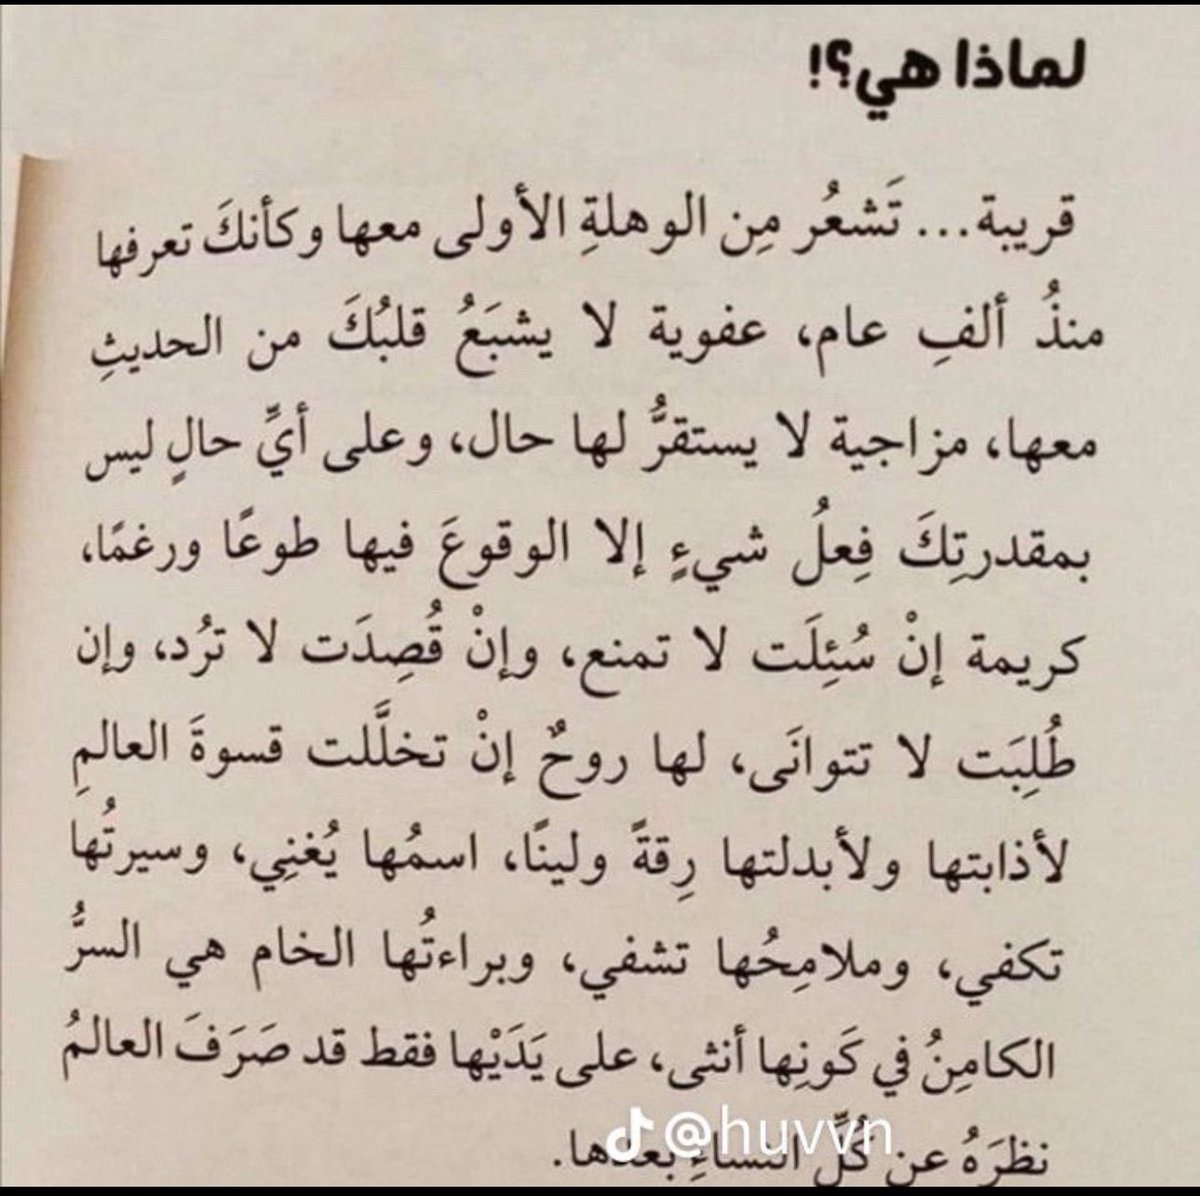 لماذا هي؟!
قريبة... تَشعُر مِن الوهلةِ الأولى معها وكأنكَ تعرفها
منذُ ألفِ عام، عفوية لا يشبَعُ قلبُكَ من الحديثِ
معها، مزاجية لا يستقرُّ لها حال، وعلى أيِّ حالٍ ليس
بمقدرتِكَ فِعلُ شيءٍ إلا الوقوعَ فيها طوعًا ورغمًا،
كريمة إنْ سُئِلَت لا تمنع، وإنْ قُصِدَت لا ترُد، وإن
طُلِبَت لا تتوانَى، لها روحٌ إنْ تخلَّلت قسوةَ العالمِ
لأذابتها ولأبدلتها رِقةً ولينًا، اسمُها يُغنِي، وسيرتُها
تكفي، وملامِحُها تشفي، وبراءتُها الخام هي السرُّ
الكامِنُ في كَونِها أنثى، على يَدَيْها فقط قد صَرَفَ العالمُ
نظرَهُ عن كُلِّ النساءِ بعدها.
@huvvn